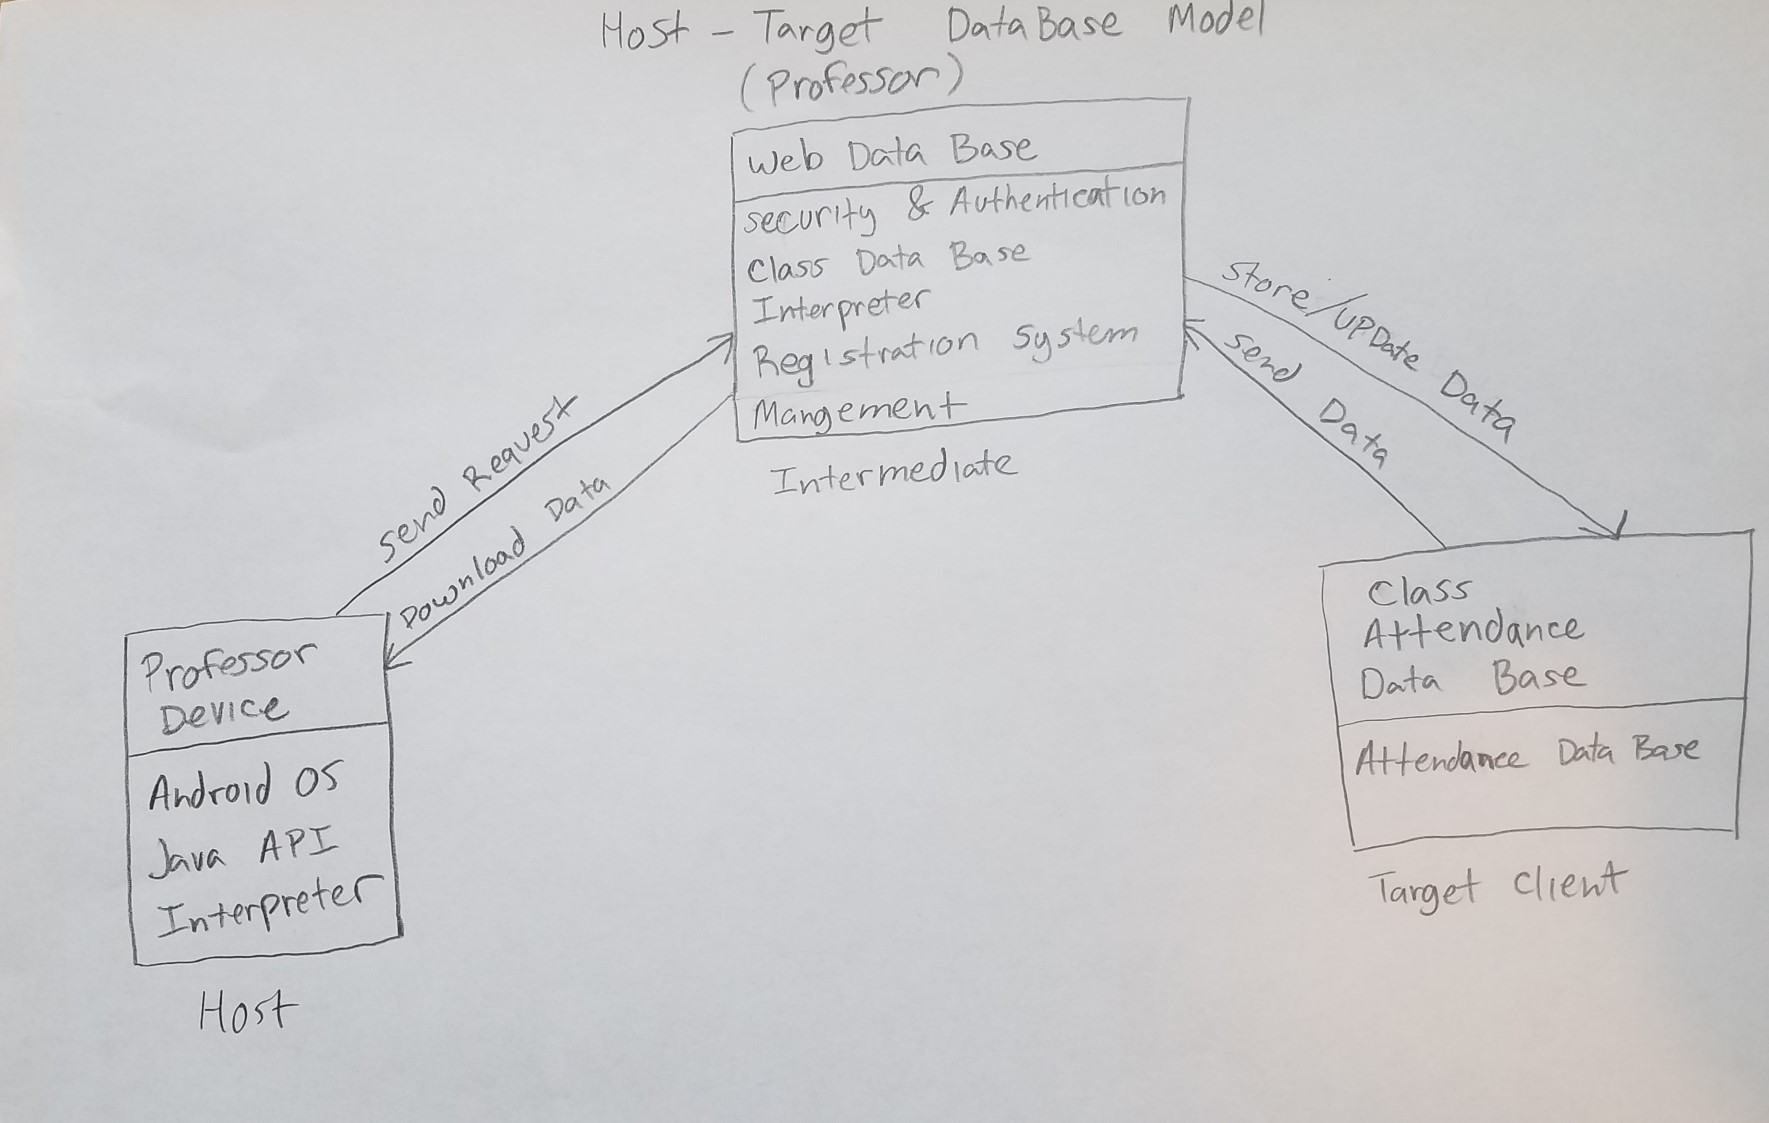 Host - Target DataBase Model
(Professor)
Web Data Base
security & Authentication
Class Data Base
Interpreter
Registration System
Mangement
Intermediate
Send Request
Download Data
Store/UPDate Data
Send Data
Professor
Device
Android OS
Java API
Interpreter
Host
Class
Attendance
Data Base
Attendance Data Base
Target Client